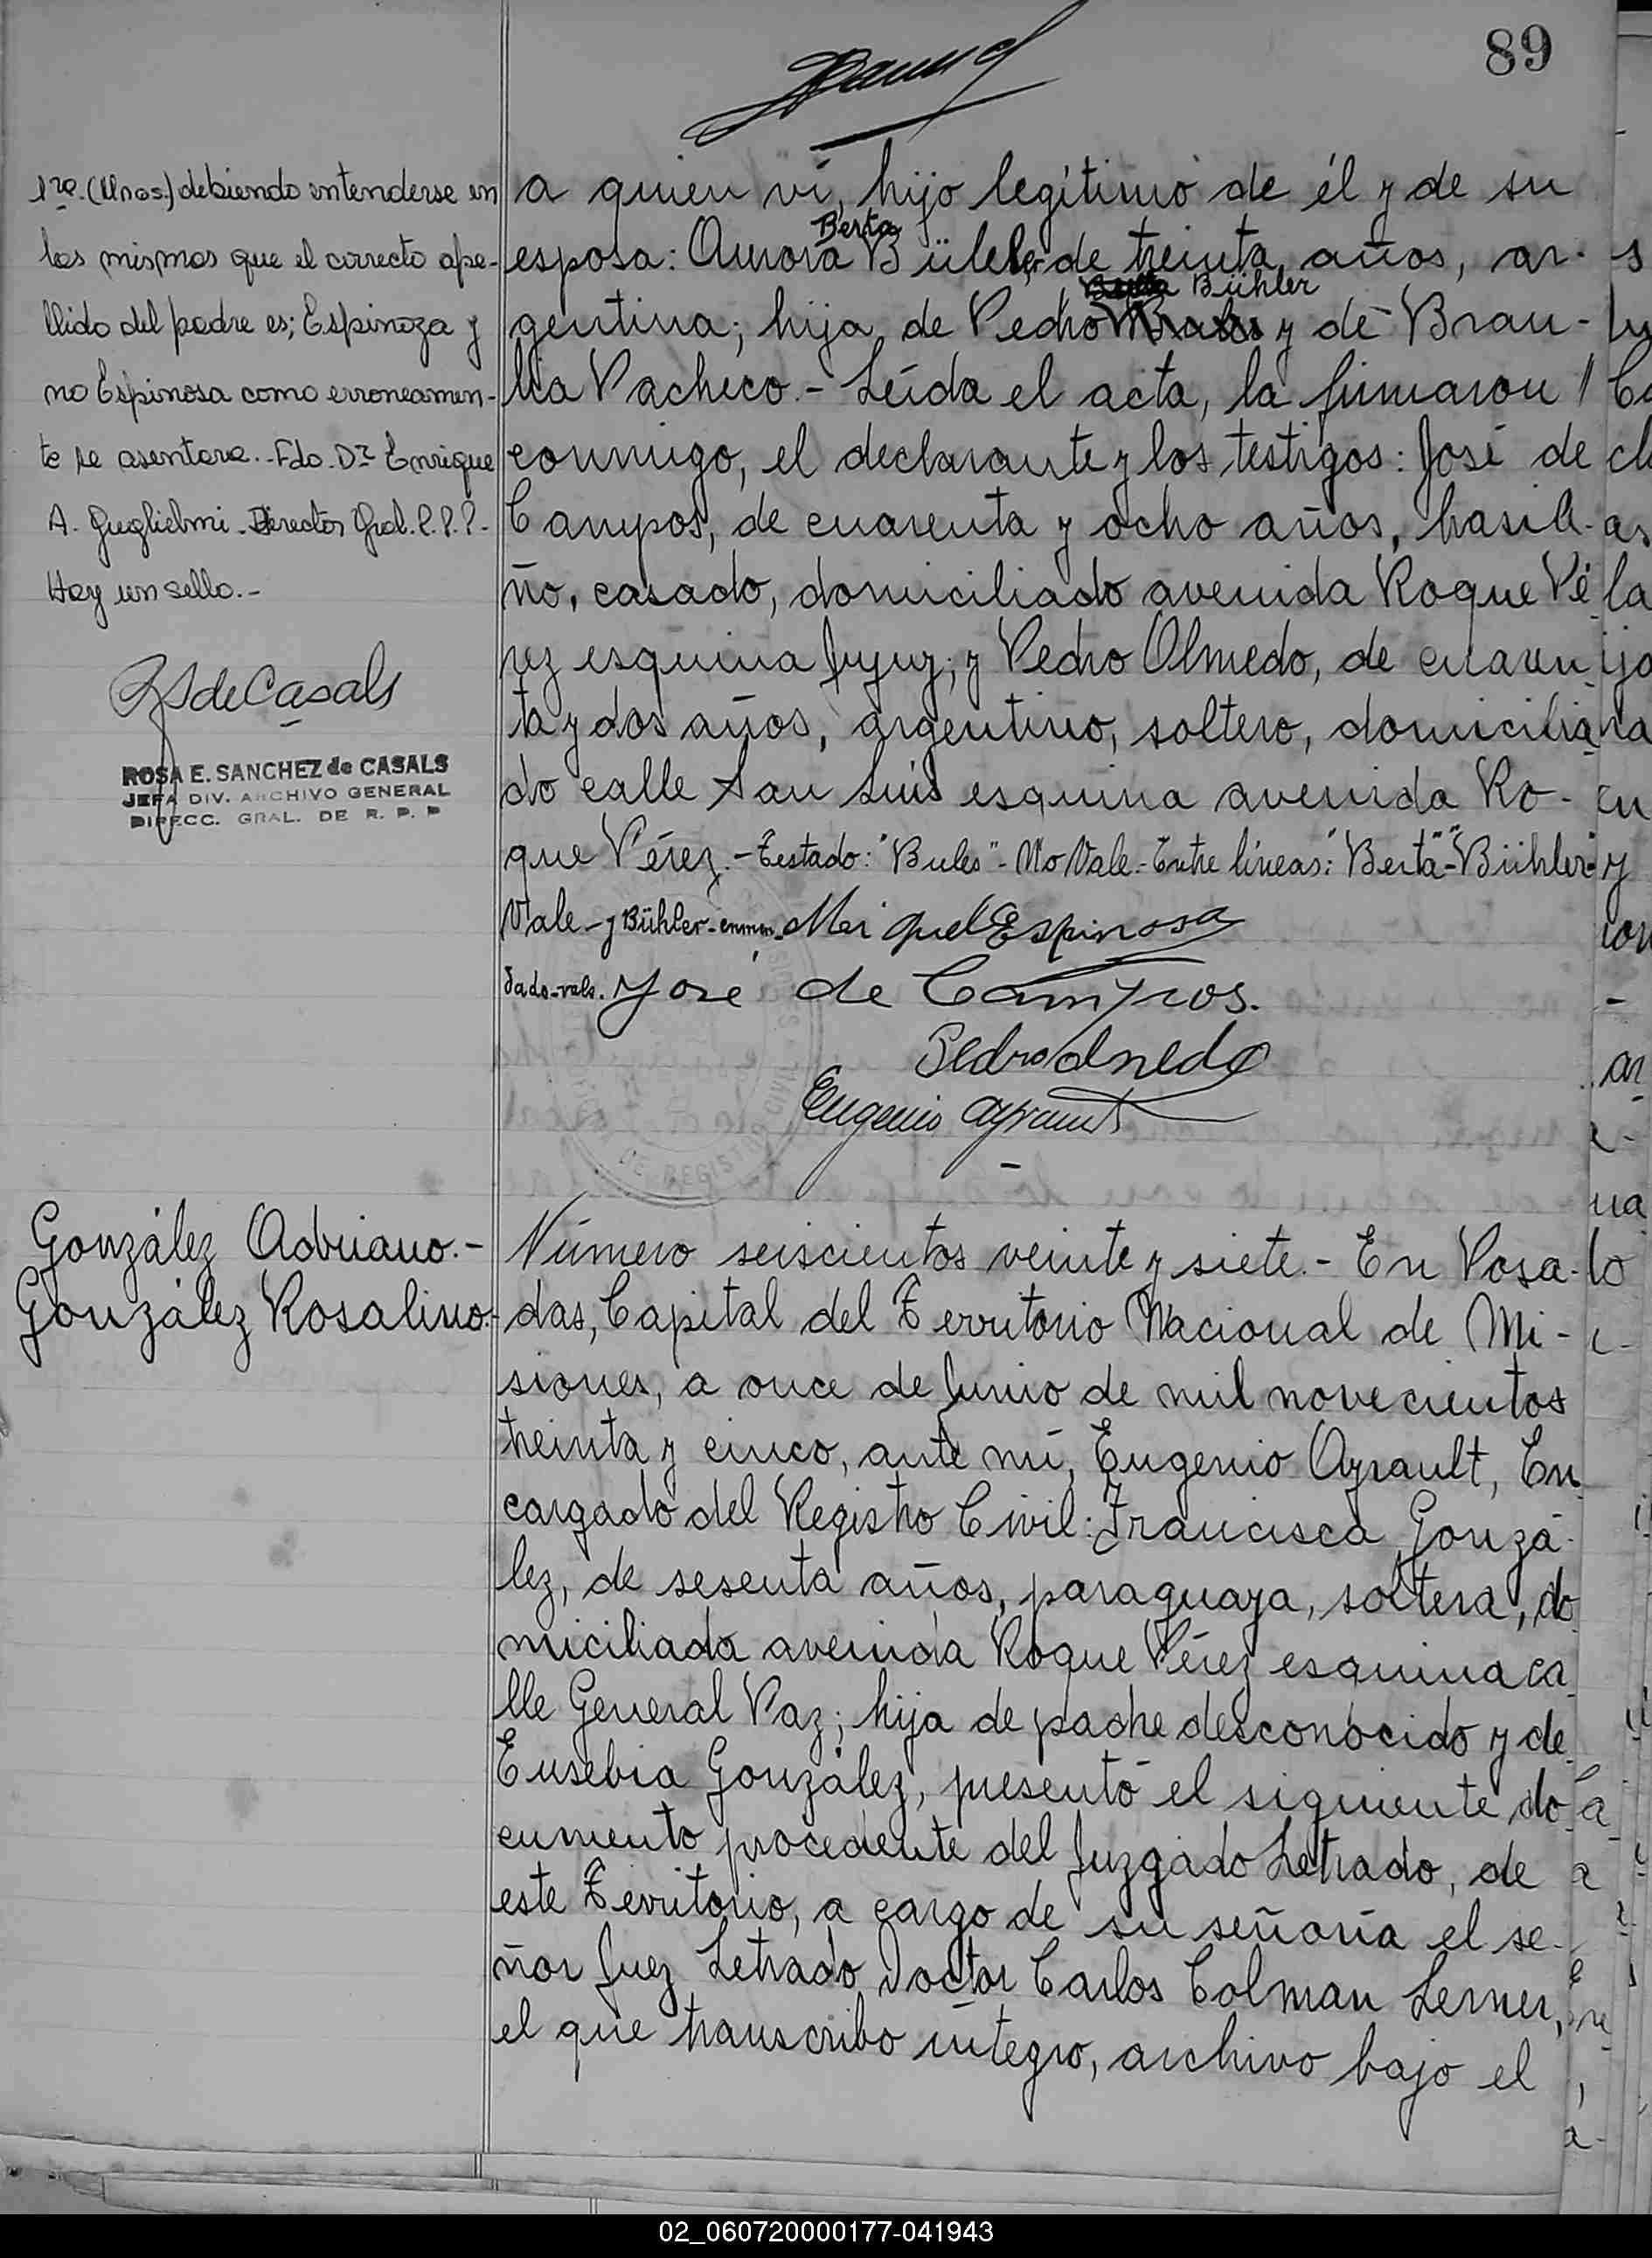 89
1ra. (Unas.) debiendo entenderse en
las mismas que el correcto ape-
llido del padre es; Espinoza y
no Espinosa como erroneamen-
te se asentara.-Fdo. Dr Enrique
A. Guglielmi-Director Gral. R.P.P.-
Hay un sello.-
RS de Casals
ROSA E. SANCHEZ de CASALS
JEFA DIV. ARCHIVO GENERAL
DIRECC. GRAL. DE R. P. P
a quien ví, hijo legítimo de él y de su
Berta
esposa: Aurora Bühler, de treinta años, ar-
Bühler
gentina; hija de Pedro y de Brau-
lia Pacheco.- Leída el acta, la firmaron /
conmigo, el declarante y los testigos: José de
Campos, de cuarenta y ocho años, brasile-
ño, casado, domiciliado avenida Roque Pé
rez esquina Jujuy; y Pedro Olmedo, de cuaren
ta y dos años, argentino, soltero, domicilia
do calle San Luis esquina avenida Ro-
que Pérez.- Testado: "Bules"- No Vale.- Entre líneas: "Berta"-"Bühler"-
Vale- y Bühler-enmen-
dado-vale.
Miguel Espinosa
José de Campos.
Pedro Olmedo
Eugenio Ayrault
DE REGISTRO CIVIL
González Adriano.-
González Rosalino.-
Número seiscientos veinte y siete.- En Posa-
das, Capital del Territorio Nacional de Mi-
siones, a once de Junio de mil novecientos
treinta y cinco, ante mí, Eugenio Ayrault, En
cargado del Registro Civil: Francisca Gonzá-
lez, de sesenta años, paraguaya, soltera, do
miciliada avenida Roque Pérez esquina ca
lle General Paz; hija de padre desconocido y de
Eusebia González, presentó el siguiente do
cumento procedente del Juzgado Letrado, de
este Territorio, a cargo de su señoría el se-
ñor Juez Letrado Doctor Carlos Colman Lerner,
el que transcribo íntegro, archivo bajo el
02_060720000177-041943